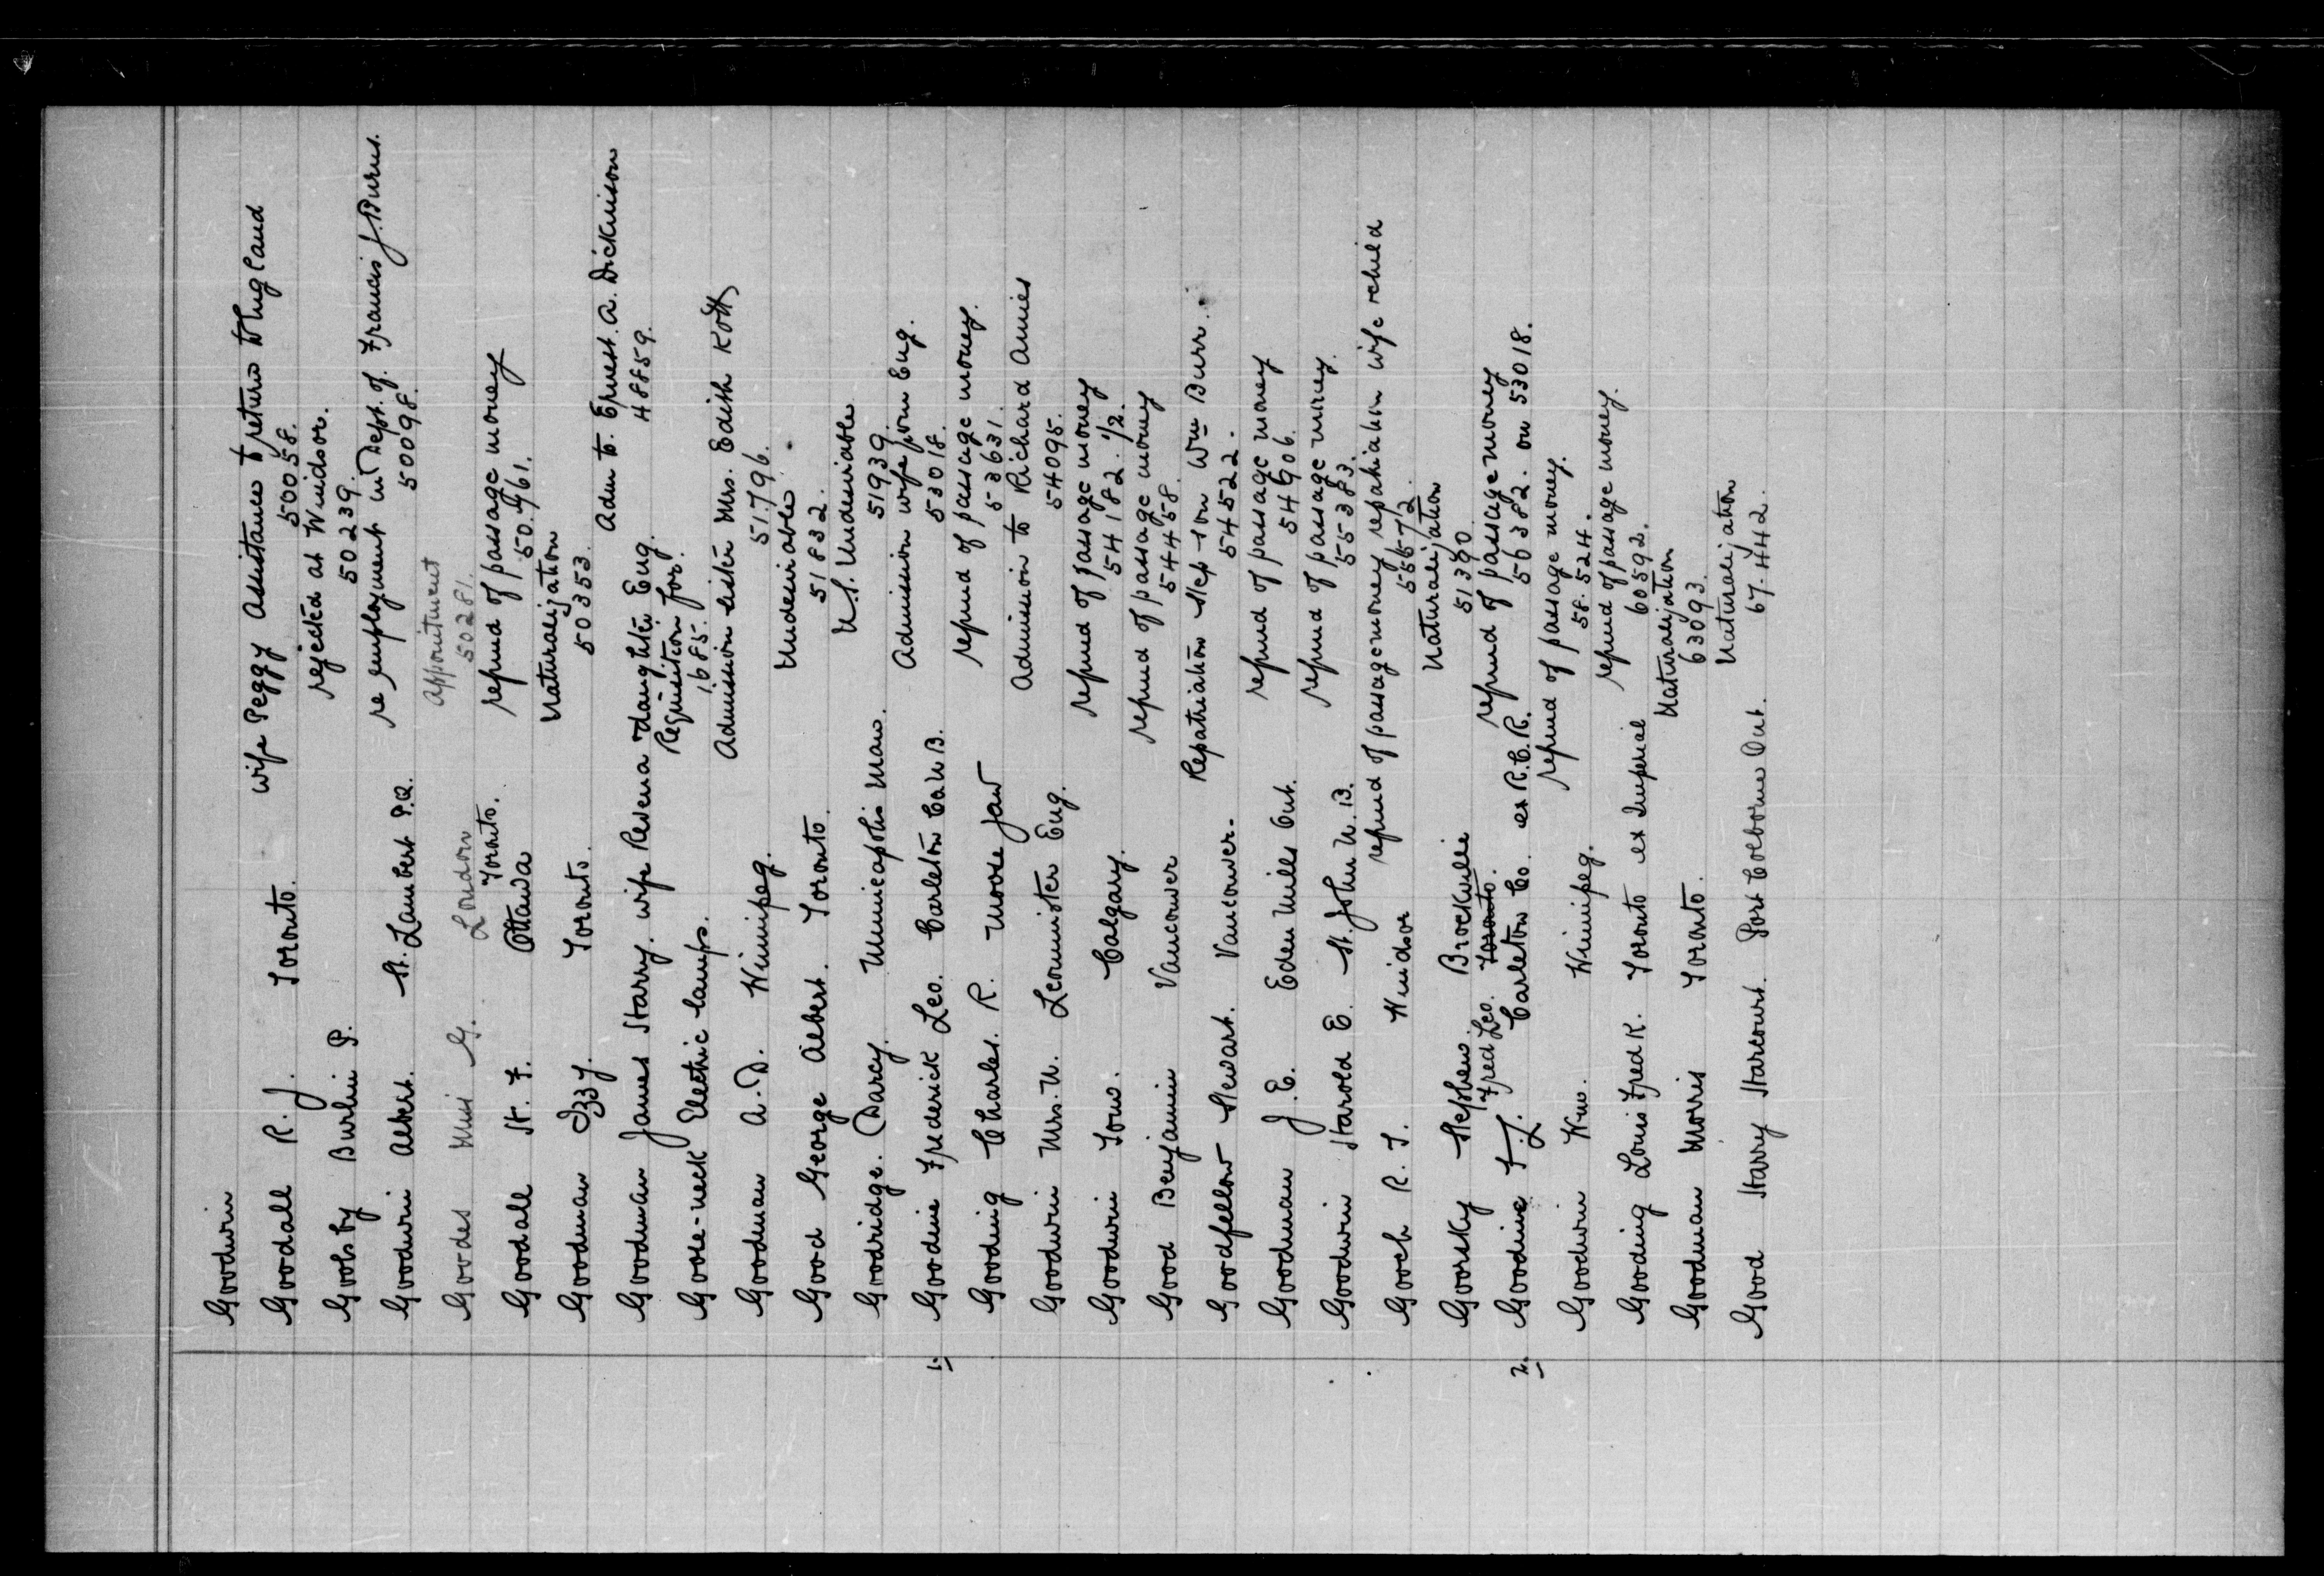 Goodwin
Goodall R. J. Toronto. wife Peggy Assistance to return to England
50058.
Goolsby Burlin P. rejected at Windsor.
50239.
Goodwin Albert. St. Lambert P.Q. re employment in Dept. of Francis J. Burns.
50098.
Goodes Miss G. London appointment
50281.
Toronto.
Goodall H. F. Ottawa refund of passage money
50.761.
Goodman Izzy. Toronto. Naturalization
50353.
Goodman James Harry. wife Revena daughter Eng. Adm to. Ernest. A. Dickinson
48859.
Goose-neck Electric lamps. Requisition for.
1685.
Goodman A. D. Winnipeg. Admission sister Mrs. Edith Kott
51.796.
Good George Albert. Toronto. Undesirable
51832.
Goodridge. Darcy. Minneapolis Man. U.S. Undesirable
51939.
1. Goodine Frederick Leo. Carleton Co N.B. Admission wife from Eng.
53018.
Gooding Charles. R. Moose Jaw refund of passage money.
53631.
Goodwin Mrs. N. Leominster Eng. Admission to Richard Amies
54095.
Goodwin Tom. Calgary. refund of passage money
54182. 1/2.
Good Benjamin Vancouver refund of passage money
54458.
Goodfellow Stewart. Vancouver. Repatriation step son Wm Burr.
54522.
Goodman J. E. Eden Mills Ont. refund of passage money
54906.
Goodwin Harold E. St. John N. B. refund of passage money.
55383.
Gooch R. T. Windsor refund of passage money repatriation wife & child
55572.
Goorsky Stephen. Brockville Naturalization
51390.
Fred Leo. Toronto.
2. Goodine F. L. Carleton Co. ex R.C.R. refund of passage money
56382. on 53018.
Goodwin Wm. Winnipeg. refund of passage money.
58.524.
Gooding Louis Fred K. Toronto ex Imperial refund of passage money.
60592.
Goodman Morris Toronto. Naturalization
63093.
Good Harry Harcourt. Port Colborne Ont. Naturalization
67.442.